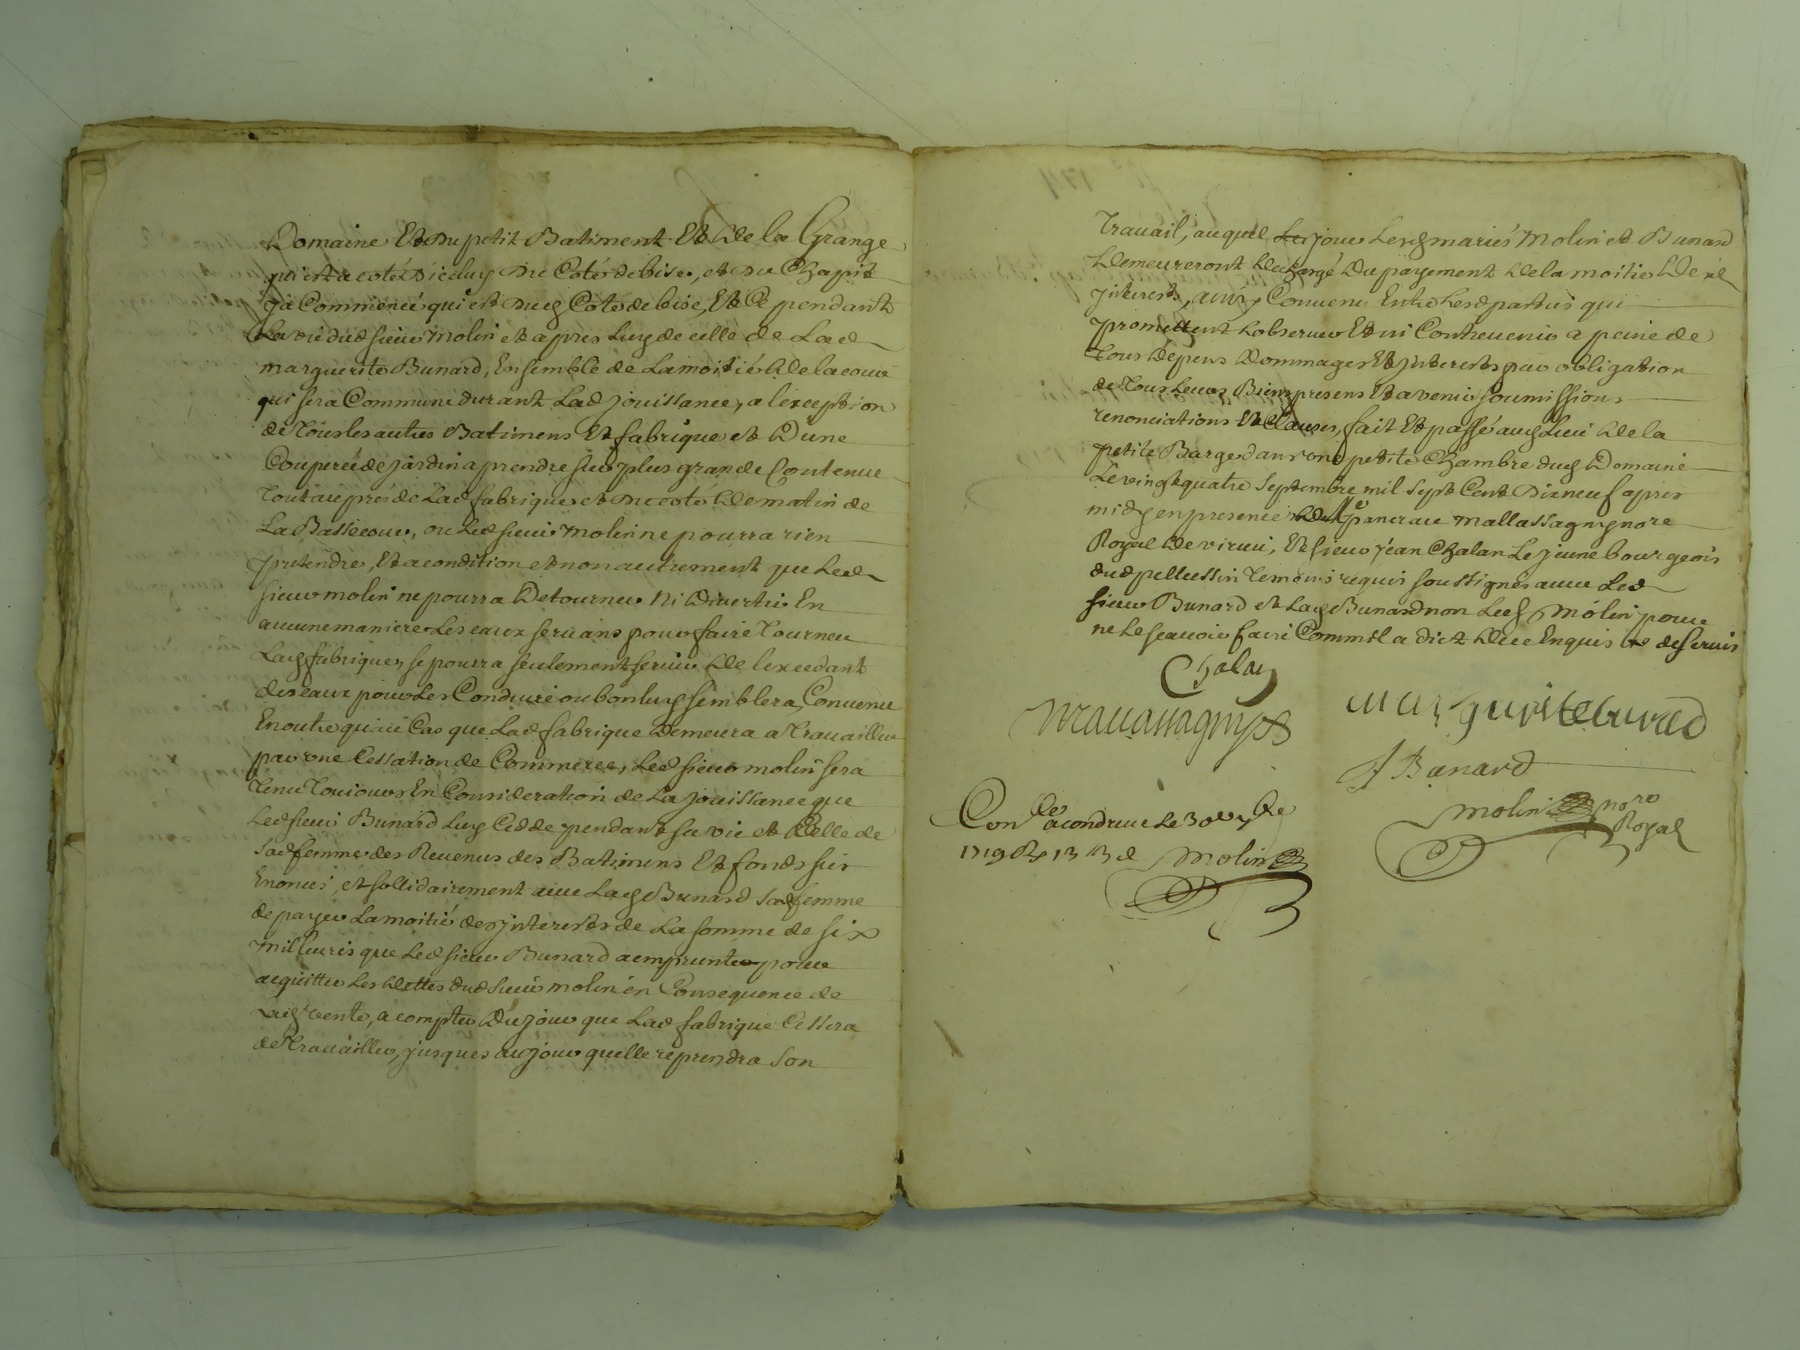 Domaine Et du petit Batiment Et de la Grange
qui est a coté d'iceluy du Coté de bise, et du Chapit
ja Commencé qui est dud Coté de bise, Et Ce pendant
La vie dud sieur Molin et apres luy de celle de Lad
marguerite Bunard, Ensemble de La moitié de la cour
qui sera Commune durant Lad jouissance, a l'exception
de tous les autres Batimens Et fabrique et D'une
Couperée de jardin a prendre sur plus grande Contenue
Tout auprés de Lad fabrique et du coté de matin de
La Bassecour, ou Led sieur molin ne pourra rien
pretendre, Et a condition et non autrement que Led
sieur molin ne pourra Detourner Ni Divertir En
aucune maniere Les eaux servans pour faire Tourner
Lad fabrique, se pourra seulement servir de l'excedant
des eaux pour Les Conduire ou bon luy semblera, Convenu
En outre qu'au Cas que Lad fabrique Demeura a Travailler
par une Cessation de Commerce, Led sieur molin sera
Tenu Toujours En Consideration de La jouissance que
Led sieur Bunard Luy Cedde pendant sa vie et Celle de
sad femme des Revenus des Batimens Et fonds sus
Enoncés, et sollidairement avec Lad Bunard sad femme
de payer La moitié des jnterests de La somme de six
mil livres que Led sieur Bunard a emprunté pour
acquitter Les Dettes dud sieur molin en Consequence de
Lad vente, a compter Du jour que Lad fabrique Cessera
de Travailler, jusques au jour quelle reprendra Son
Travail, auquel jour Lesd mariés Molin et Bunard
Demeureront Dechargé Du payement De la moitié Desd
jnterests, ainsy Convenu Entre Lesd parties qui
promettent L'observer Et ni Contrevenir a peine de
Tous Depens Dommages Et jnterests par obligation
de Tous Leurs Biens presens Et avenir soumissions
renonciations Et Clauses, fait Et passé aud Lieu De la
petite Barge dans une petite Chambre dud Domaine
Le vingtquatre Septembre mil Sept Cent Dixneuf apres
midy en presence de Me pancrace mallassagny nore
Royal De virieu, Et sieur jean Chalan Le jeune bourgeois
dud pellussin Temoins requis soussignés avec Led
sieur Bunard et Lad Bunard non Led Molin pour
ne Le sçavoir faire Comm'il a dict De ce Enquis
Chalan
Mallassagny
Marguerite bunad
Bunard
molin nore
Royal
Conlé a condrieu Le
1719
Molin